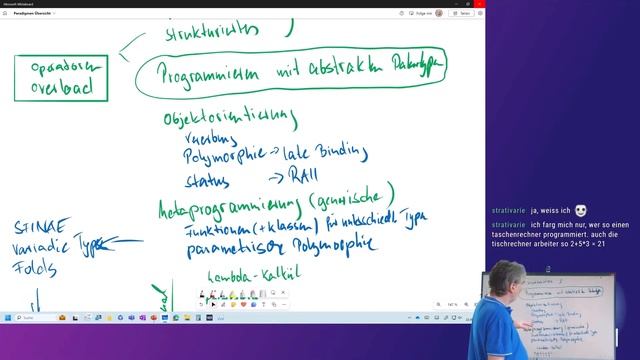 Microsoft Whiteboard
Paradigmen Übersicht
Folge mir
strukturiertes
Operatoren
overload
Programmieren mit abstrakten Datentypen
Objektorientierung
Vererbung
Polymorphie → late Binding
status → RAII
Metaprogrammierung (generische)
Funktionen (+klassen) für unterschiedl. Type
parametrische Polymorphie
SFINAE
variadic Type
Folds
Lambda-Kalkül
Suchen
strativarie : ja, weiss ich
strativarie : ich farg mich nur, wer so einen
taschenrechner programmiert. auch die
tischrechner arbeiter so 2+5*3 × 21